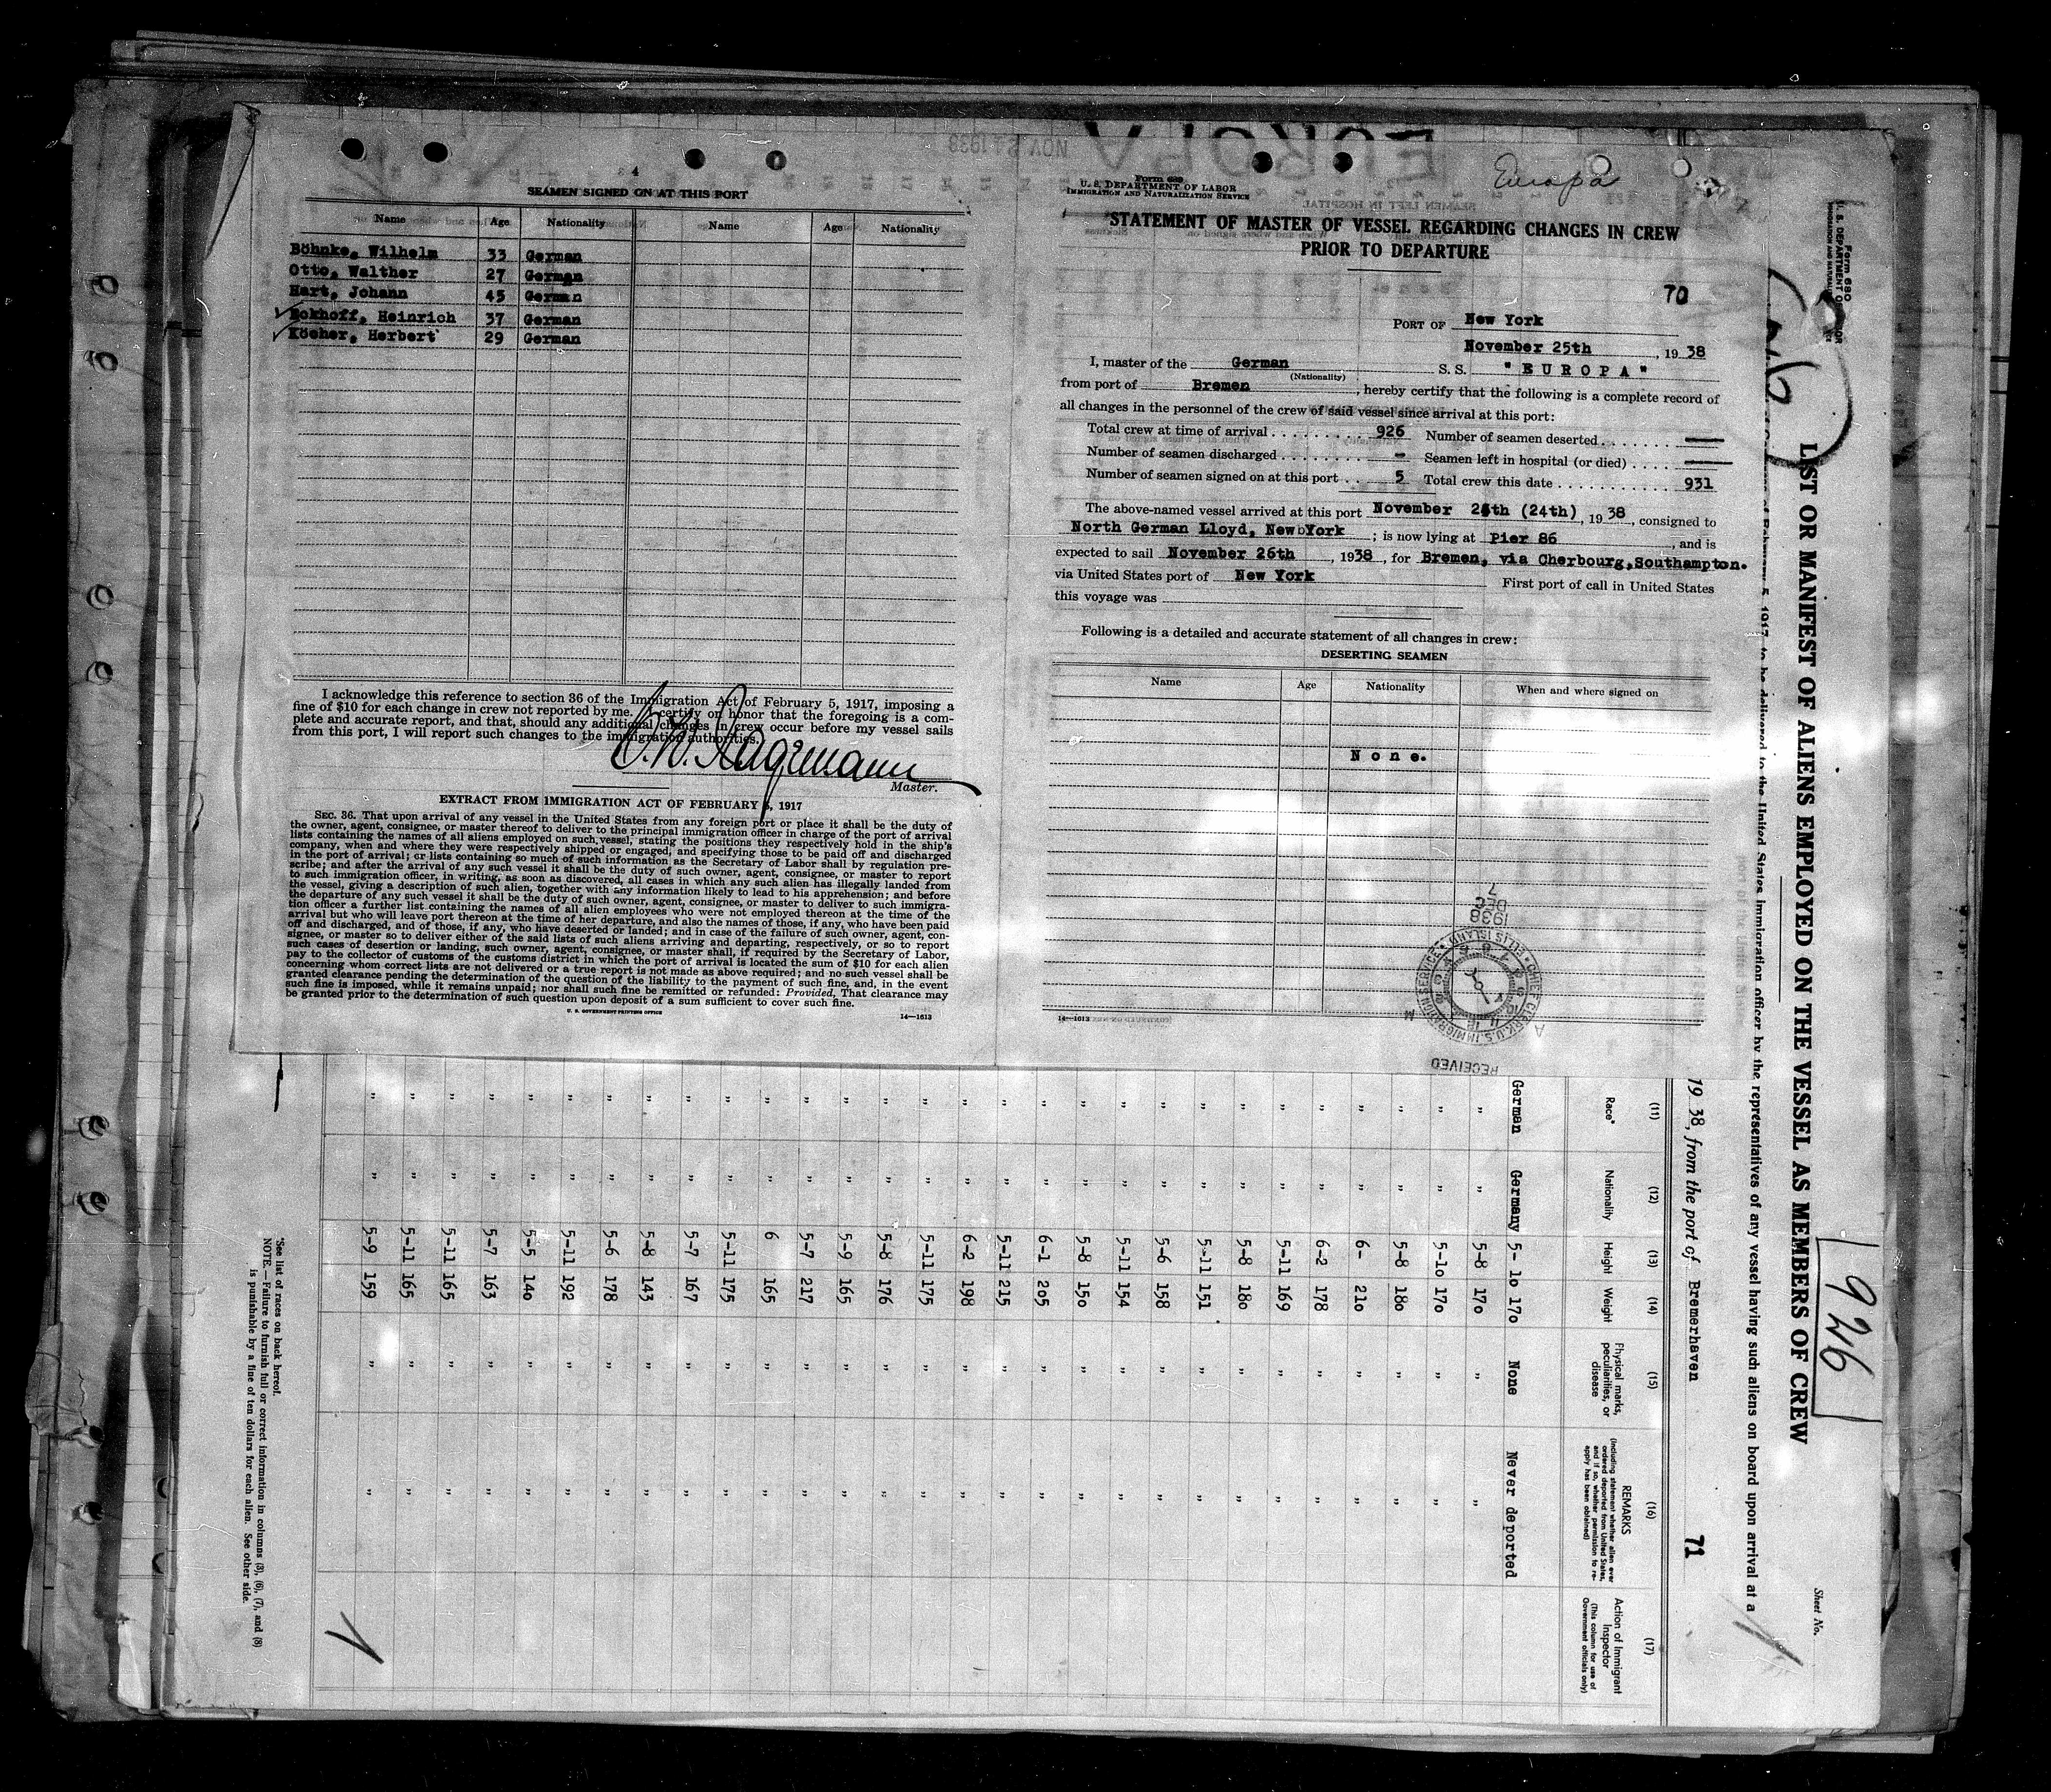 4
SEAMEN SIGNED ON AT THIS PORT
Name Age Nationality Name Age Nationality
Böhnke, Wilhelm 33 German
Otto, Walther 27 German
Hart, Johann 45 German
Heinrich 37 German
Herbert 29 German
I acknowledge this reference to section 36 of the Immigration Act of February 5, 1917, imposing a
fine of $10 for each change in crew not reported by me. I certify on honor that the foregoing is a com-
plete and accurate report, and that, should any additional changes in crew occur before my vessel sails
from this port, I will report such changes to the immigration authorities.
Master.
EXTRACT FROM IMMIGRATION ACT OF FEBRUARY 5, 1917
SEC. 36. That upon arrival of any vessel in the United States from any foreign port or place it shall be the duty of
the owner, agent, consignee, or master thereof to deliver to the principal immigration officer in charge of the port of arrival
lists containing the names of all aliens employed on such vessel, stating the positions they respectively hold in the ship's
company, when and where they were respectively shipped or engaged, and specifying those to be paid off and discharged
in the port of arrival; or lists containing so much of such information as the Secretary of Labor shall by regulation pre-
scribe; and after the arrival of any such vessel it shall be the duty of such owner, agent, consignee, or master to report
to such immigration officer, in writing, as soon as discovered, all cases in which any such alien has illegally landed from
the vessel, giving a description of such alien, together with any information likely to lead to his apprehension; and before
the departure of any such vessel it shall be the duty of such owner, agent, consignee, or master to deliver to such immigra-
tion officer a further list containing the names of all alien employees who were not employed thereon at the time of the
arrival but who will leave port thereon at the time of her departure, and also the names of those, if any, who have been paid
off and discharged, and of those, if any, who have deserted or landed; and in case of the failure of such owner, agent, con-
signee, or master so to deliver either of the said lists of such aliens arriving and departing, respectively, or so to report
such cases of desertion or landing, such owner, agent, consignee, or master shall, if required by the Secretary of Labor,
pay to the collector of customs of the customs district in which the port of arrival is located the sum of $10 for each alien
concerning whom correct lists are not delivered or a true report is not made as above required; and no such vessel shall be
granted clearance pending the determination of the question of the liability to the payment of such fine, and, in the event
such fine is imposed, while it remains unpaid; nor shall such fine be remitted or refunded: Provided, That clearance may
be granted prior to the determination of such question upon deposit of a sum sufficient to cover such fine.
U. S. GOVERNMENT PRINTING OFFICE 14—1613
Form 689
U. S. DEPARTMENT OF LABOR
IMMIGRATION AND NATURALIZATION SERVICE
Europa
STATEMENT OF MASTER OF VESSEL REGARDING CHANGES IN CREW
PRIOR TO DEPARTURE
70
PORT OF New York
November 25th, 1938
I, master of the German S. S. "EUROPA"
(Nationality)
from port of Bremen, hereby certify that the following is a complete record of
all changes in the personnel of the crew of said vessel since arrival at this port:
Total crew at time of arrival 926 Number of seamen deserted —
Number of seamen discharged - Seamen left in hospital (or died) —
Number of seamen signed on at this port 5 Total crew this date 931
The above-named vessel arrived at this port November (24th), 1938, consigned to
North German Lloyd, New York; is now lying at Pier 86, and is
expected to sail November 26th, 1938, for Bremen, via Cherbourg,Southampton.
via United States port of New York First port of call in United States
this voyage was
Following is a detailed and accurate statement of all changes in crew:
DESERTING SEAMEN
Name Age Nationality When and where signed on
None.
14—1613
RECEIVED
CHIEF CLERK U.S. IMMIGRATION SERVICE ELLIS ISLAND
1938
DEC
7
Form 680
Sheet No.
926
LIST OR MANIFEST OF ALIENS EMPLOYED ON THE VESSEL AS MEMBERS OF CREW
5, 1917, to be delivered to the United States immigration officer by the representatives of any vessel having such aliens on board upon arrival at a
1938, from the port of Bremerhaven 71
(11) (12) (13) (14) (15) (16) (17)
Race* Nationality Height Weight Physical marks, peculiarities, or disease REMARKS (Including statement whether alien ever ordered deported from United States, and if so, whether permission to reapply has been obtained) Action of Immigrant Inspector (This column for use of Government officials only)
German Germany 5-10 170 None Never deported
" " 5-8 170 " "
" " 5-10 170 " "
" " 5-8 180 " "
" " 6- 210 " "
" " 6-2 178 " "
" " 5-11 169 " "
" " 5-8 180 " "
" " 5-11 151 " "
" " 5-6 158 " "
" " 5-11 154 " "
" " 5-8 150 " "
" " 6-1 205 " "
" " 5-11 215 " "
" " 6-2 198 " "
" " 5-11 175 " "
" " 5-8 176 " "
" " 5-9 165 " "
" " 5-7 217 " "
" " 6 165 " "
" " 5-11 175 " "
" " 5-7 167 " "
" " 5-8 143 " "
" " 5-6 178 " "
" " 5-11 192 " "
" " 5-5 140 " "
" " 5-7 163 " "
" " 5-11 165 " "
" " 5-11 165 " "
" " 5-9 159 " "
*See list of races on back hereof.
NOTE.—Failure to furnish full or correct information in columns (3), (6), (7), and (8)
is punishable by a fine of ten dollars for each alien. See other side.